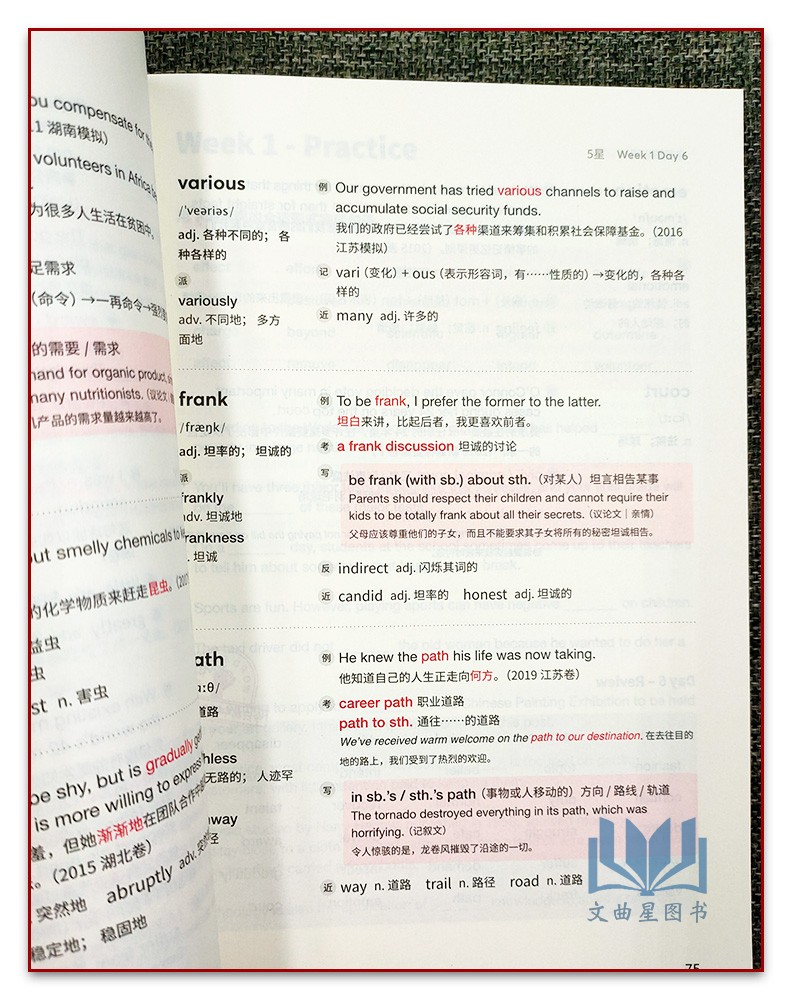 ou compensate for
湖南模拟）
volunteers in Africa
为很多人生活在贫困中。
足需求
（命令）→一再命令→强烈
的需要 / 需求
and for organic product,
many nutritionists.（议论文）
产品的需求量越来越高了。
out smelly chemicals to
的化学物质来赶走昆虫。
益虫
虫
st n. 害虫
be shy, but is gradually
is more willing to express
羞，但她渐渐地在团队合作中
（2015 湖北卷）
突然地 abruptly adv.
稳定地； 稳固地
5星 Week 1 Day 6
various
/ˈveəriəs/
adj. 各种不同的； 各
种各样的
派
variously
adv. 不同地； 多方
面地
例 Our government has tried various channels to raise and
accumulate social security funds.
我们的政府已经尝试了各种渠道来筹集和积累社会保障基金。（2016
江苏模拟）
记 vari（变化）+ ous（表示形容词，有……性质的）→变化的，各种各
样的
近 many adj. 许多的
frank
/fræŋk/
adj. 坦率的； 坦诚的
派
frankly
adv. 坦诚地
frankness
坦诚
例 To be frank, I prefer the former to the latter.
坦白来讲，比起后者，我更喜欢前者。
考 a frank discussion 坦诚的讨论
写 be frank (with sb.) about sth.（对某人）坦言相告某事
Parents should respect their children and cannot require their
kids to be totally frank about all their secrets.（议论文｜亲情）
父母应该尊重他们的子女，而且不能要求其子女将所有的秘密坦诚相告。
反 indirect adj. 闪烁其词的
近 candid adj. 坦率的 honest adj. 坦诚的
ath
ɑːθ/
道路
hless
无路的； 人迹罕
way
径
例 He knew the path his life was now taking.
他知道自己的人生正走向何方。（2019 江苏卷）
考 career path 职业道路
path to sth. 通往……的道路
We've received warm welcome on the path to our destination. 在去往目的
地的路上，我们受到了热烈的欢迎。
写 in sb.'s / sth.'s path（事物或人移动的）方向 / 路线 / 轨道
The tornado destroyed everything in its path, which was
horrifying.（记叙文）
令人惊骇的是，龙卷风摧毁了沿途的一切。
近 way n. 道路 trail n. 路径 road n. 道路
文曲星图书
75